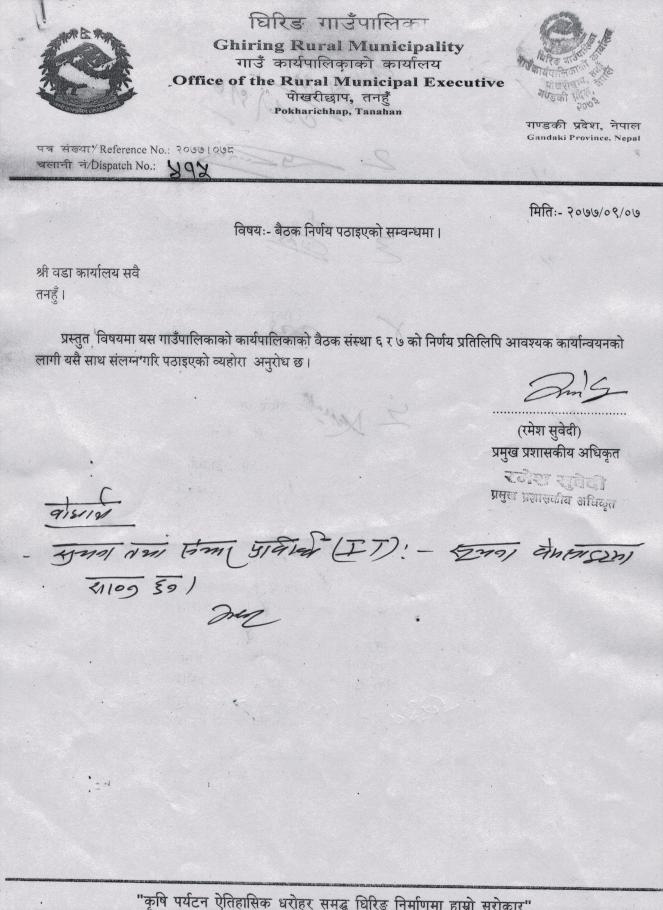 घिरिङ गाउँपालिका
Ghiring Rural Municipality
गाउँ कार्यपालिकाको कार्यालय
Office of the Rural Municipal Executive
पोखरीछाप, तनहुँ
Pokharichhap, Tanahan
गण्डकी प्रदेश, नेपाल
Gandaki Province, Nepal
पत्र संख्या/ Reference No.: २०७७।०७८
चलानी नं/Dispatch No.: ४१५
मितिः- २०७७/०९/०७
विषयः- बैठक निर्णय पठाइएको सम्वन्धमा।
श्री वडा कार्यालय सवै
तनहुँ।
प्रस्तुत विषयमा यस गाउँपालिकाको कार्यपालिकाको वैठक संस्था ६ र ७ को निर्णय प्रतिलिपि आवश्यक कार्यान्वयनको
लागी यसै साथ संलग्न गरि पठाइएको व्यहोरा अनुरोध छ।
(रमेश सुवेदी)
प्रमुख प्रशासकीय अधिकृत
रमेश सुवेदी
प्रमुख प्रशासकीय अधिकृत
वोधार्थ
- सुचना तथा संचार प्रविधि (IT):-
"कृषि पर्यटन ऐतिहासिक धरोहर समृद्ध घिरिङ निर्माणमा हाम्रो सरोकार"